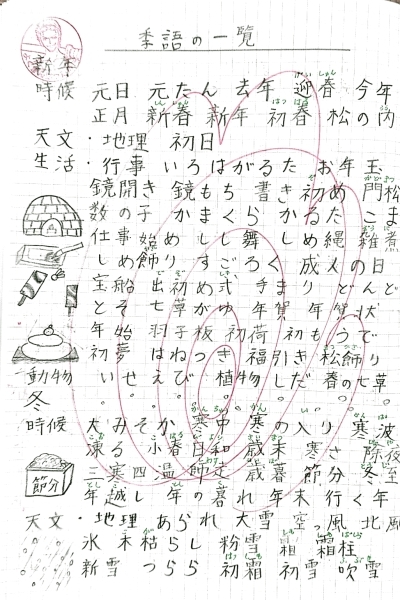 季語の一覧
新年
時候 元日 元たん 去年 迎春 今年
正月 新春 新年 初春 松の内
天文・地理 初日
生活・行事 いろはがるた お年玉
鏡開き 鏡もち 書き初め 門松
数の子 かまくら かるた こま
仕事始め しし舞 しめ縄 雑煮
しめ飾り すごろく 成人の日
宝船 出初め式 手まり どんど
とそ 七草がゆ 年賀 年賀状
年始 羽子板 初荷 初もうで
初夢 はねつき 福引き 松飾り
動物 いせえび。植物 春の七草。
冬
時候 大みそか 寒中 寒の入り 寒波
凍みる 小春日和 歳末 寒さ 除夜
三寒四温 師走 歳暮 節分 冬至
節分
年越し 年の暮れ 年末 行く年
天文・地理 あられ 大雪 空っ風 北風
氷 木枯らし 粉雪 霜 霜柱
新雪 つらら 初霜 初雪 吹雪